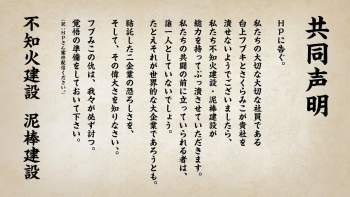 共同声明
HPに告ぐ。
私たちの大切な大切な社員である
白上フブキとさくらみこが貴社を
潰せないようでございましたら、
私たち不知火建設・泥棒建設が
総力を持ってぶっ潰させていただきます。
私たちの共闘の前に立っていられる者は、
誰一人としていないでしょう。
たとえそれが世界的な大企業であろうとも。
結託した二企業の恐ろしさを、
そして、その偉大さを知りなさい。
フブみこの仇は、我々が必ず討つ。
覚悟の準備をしておいて下さい。
不知火建設 泥棒建設